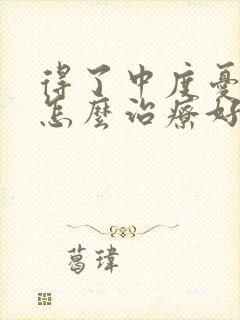 得了中度憂
怎麼治療好
葛瑋